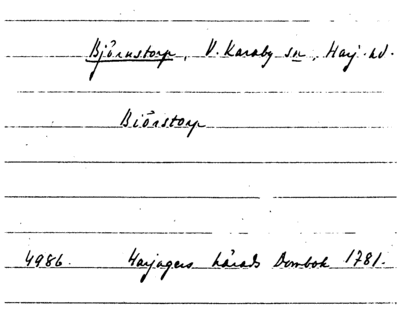 Björnstorp, V. Karaby sn, Harj. hd.
Biörstorp
4986. Harjagers härads Dombok 1781.